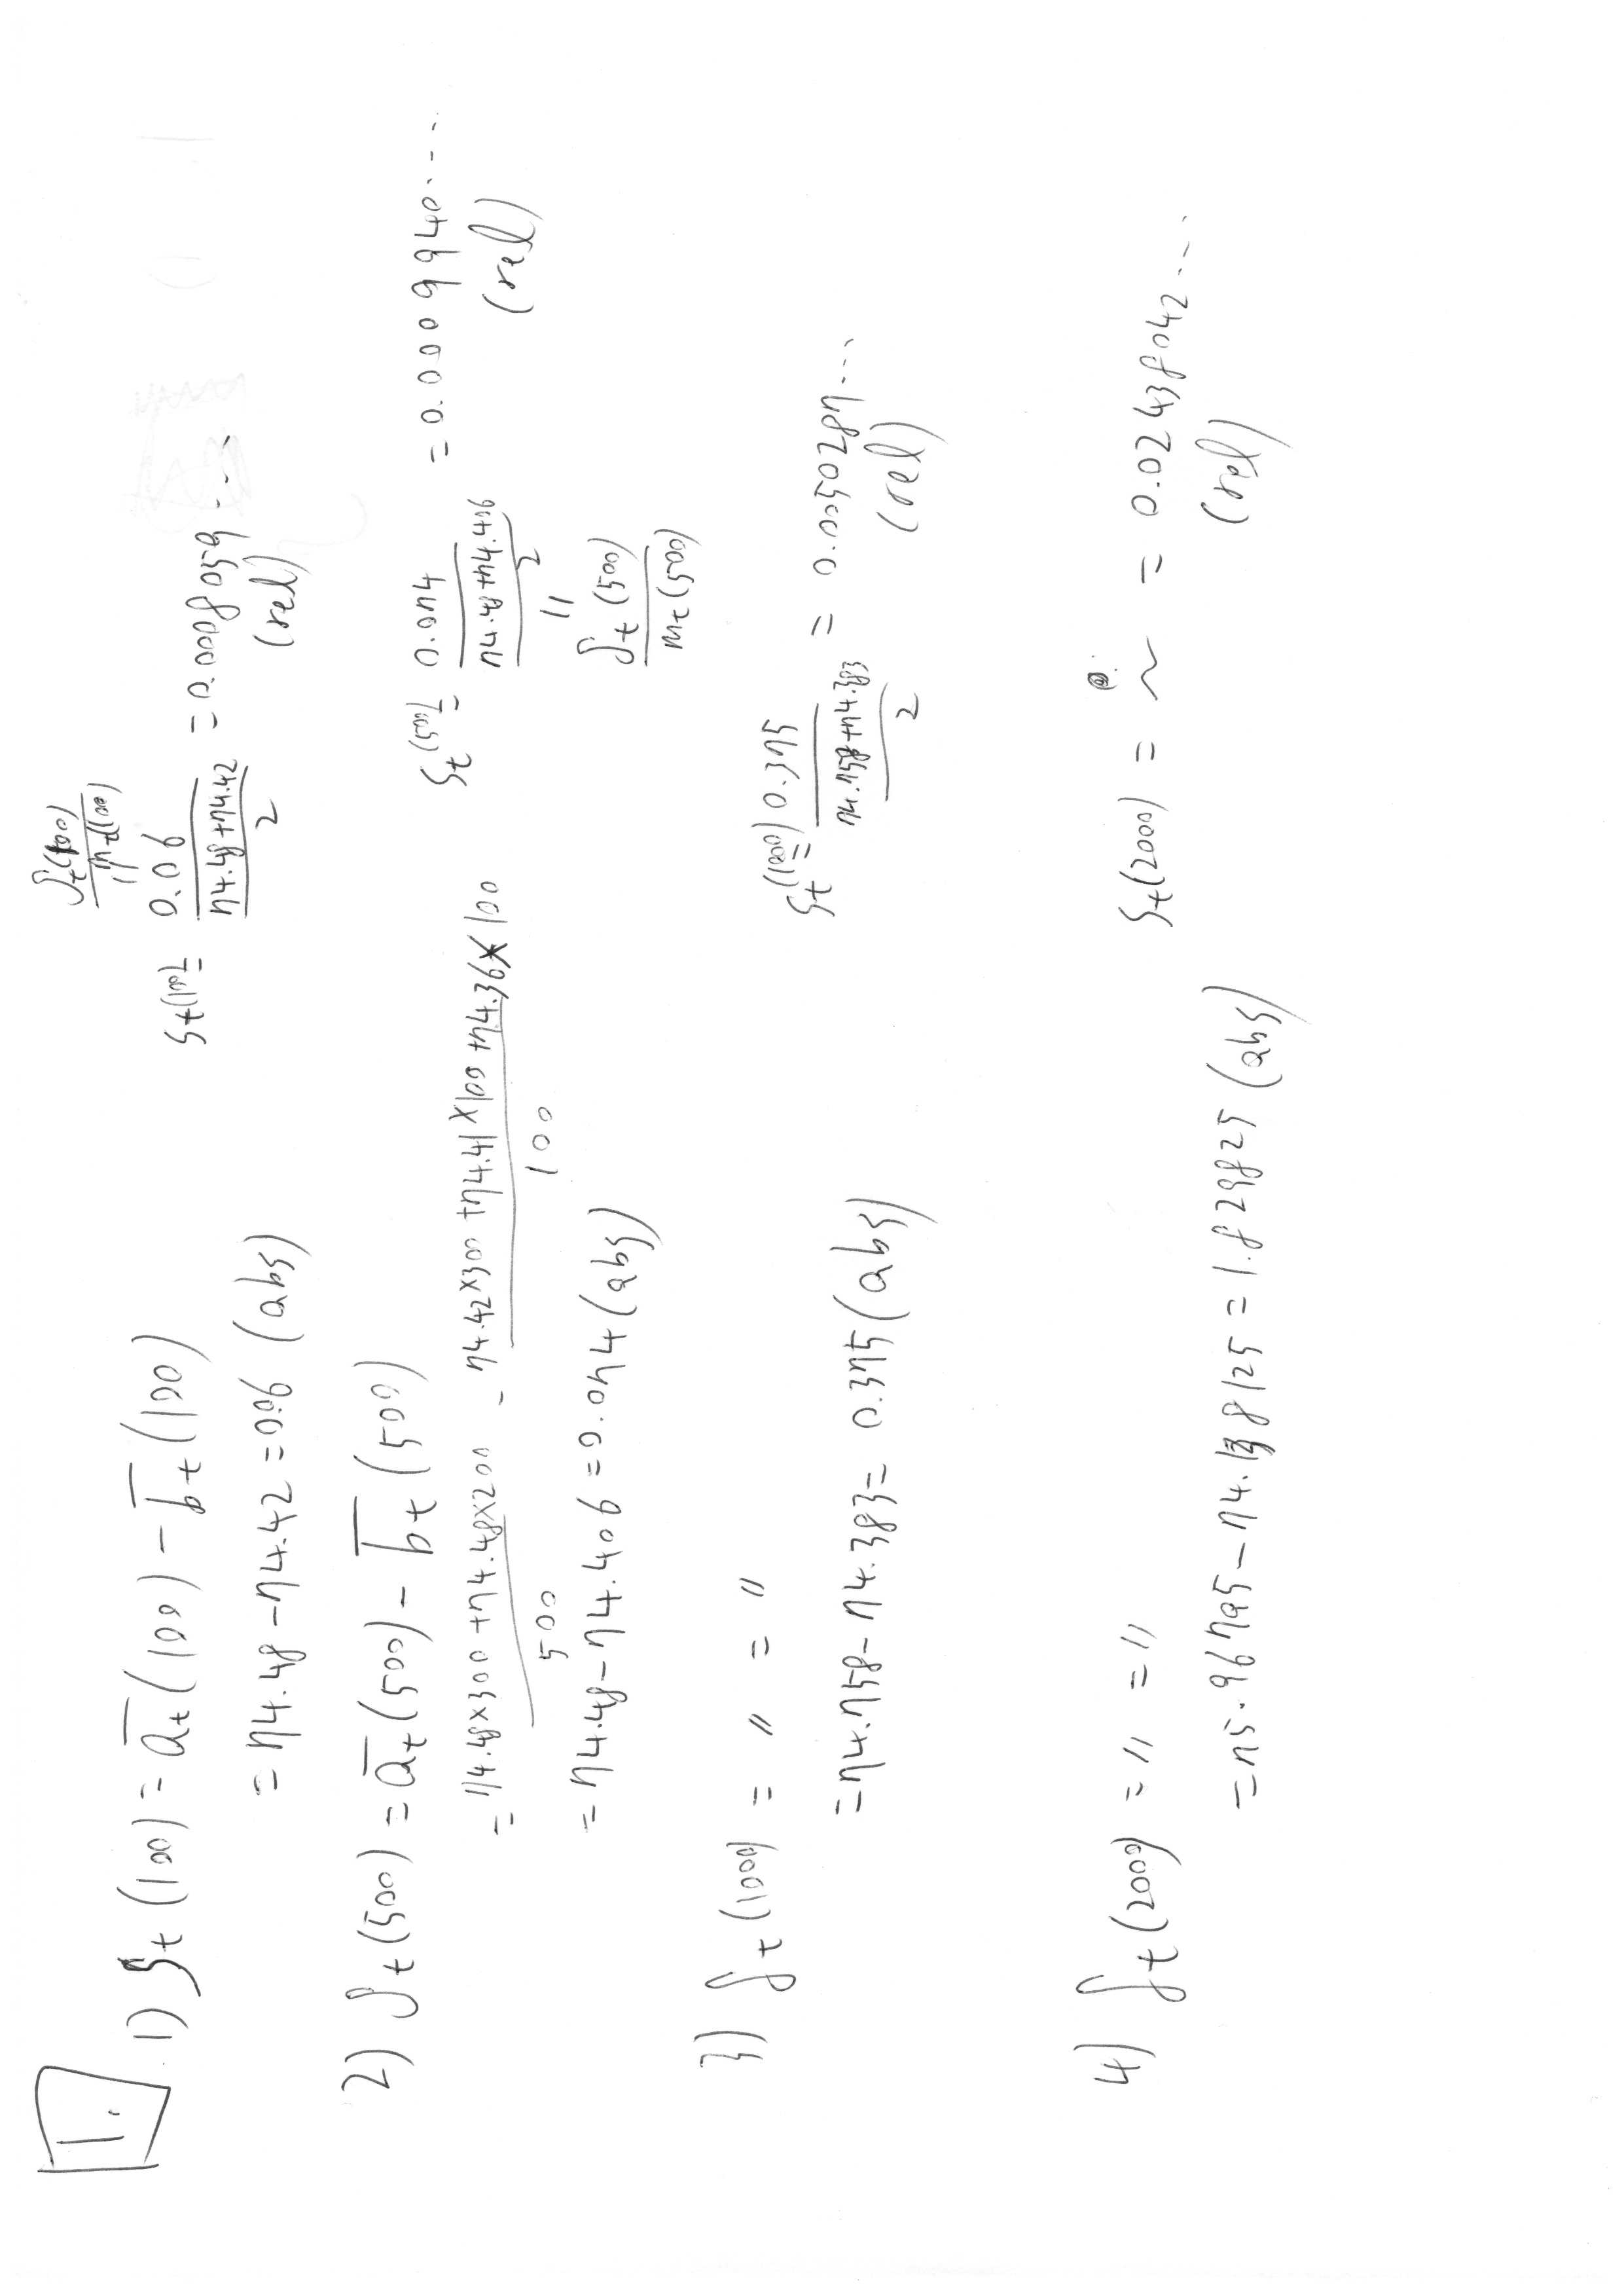 1.
1) S_t (100) = \overline{a_t} (100) - \overline{b_t} (100)
= 74.48 - 74.42 = 0.06 (abs)
S_t(100) / m_t(100)
||
s_t(100) = 0.06 / ((74.48+74.42)/2) = 0.0008059 ...
(rel)
2) S_t (500) = \overline{a_t} (500) - \overline{b_t} (500)
= (74.48×300 + 74.48×200) / 500 - (74.42×300 + 74.41×100 + 74.36×100) / 100
= 74.48 - 74.406 = 0.074 (abs)
s_t(500) = 0.074 / ((74.48+74.406)/2) = 0.0009940...
(rel)
||
S_t (500) / m_t (500)
3) S_t (1000) = 〃 = 〃
= 74.758 - 74.383 = 0.375 (abs)
s_t(1000) = 0.375 / ((74.758+74.383)/2) = 0.0050287...
(rel)
4) S_t (2000) = 〃 = 〃
= 75.96795 - 74.138125 = 1.829825 (abs)
s_t(2000) = ~ = 0.02438042...
(rel)